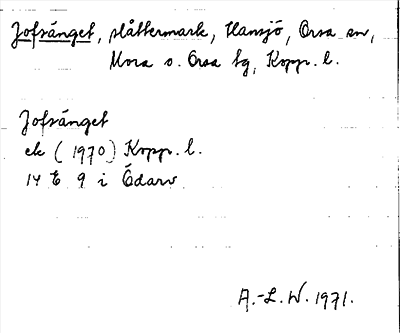 Jofsänget, slåttermark, Hansjö, Orsa sn,
Mora o. Orsa tg, Kopp. l.
Jofsänget
ek (1970) Kopp. l.
14 E 9 i Ödarv
A.-L. W. 1971.